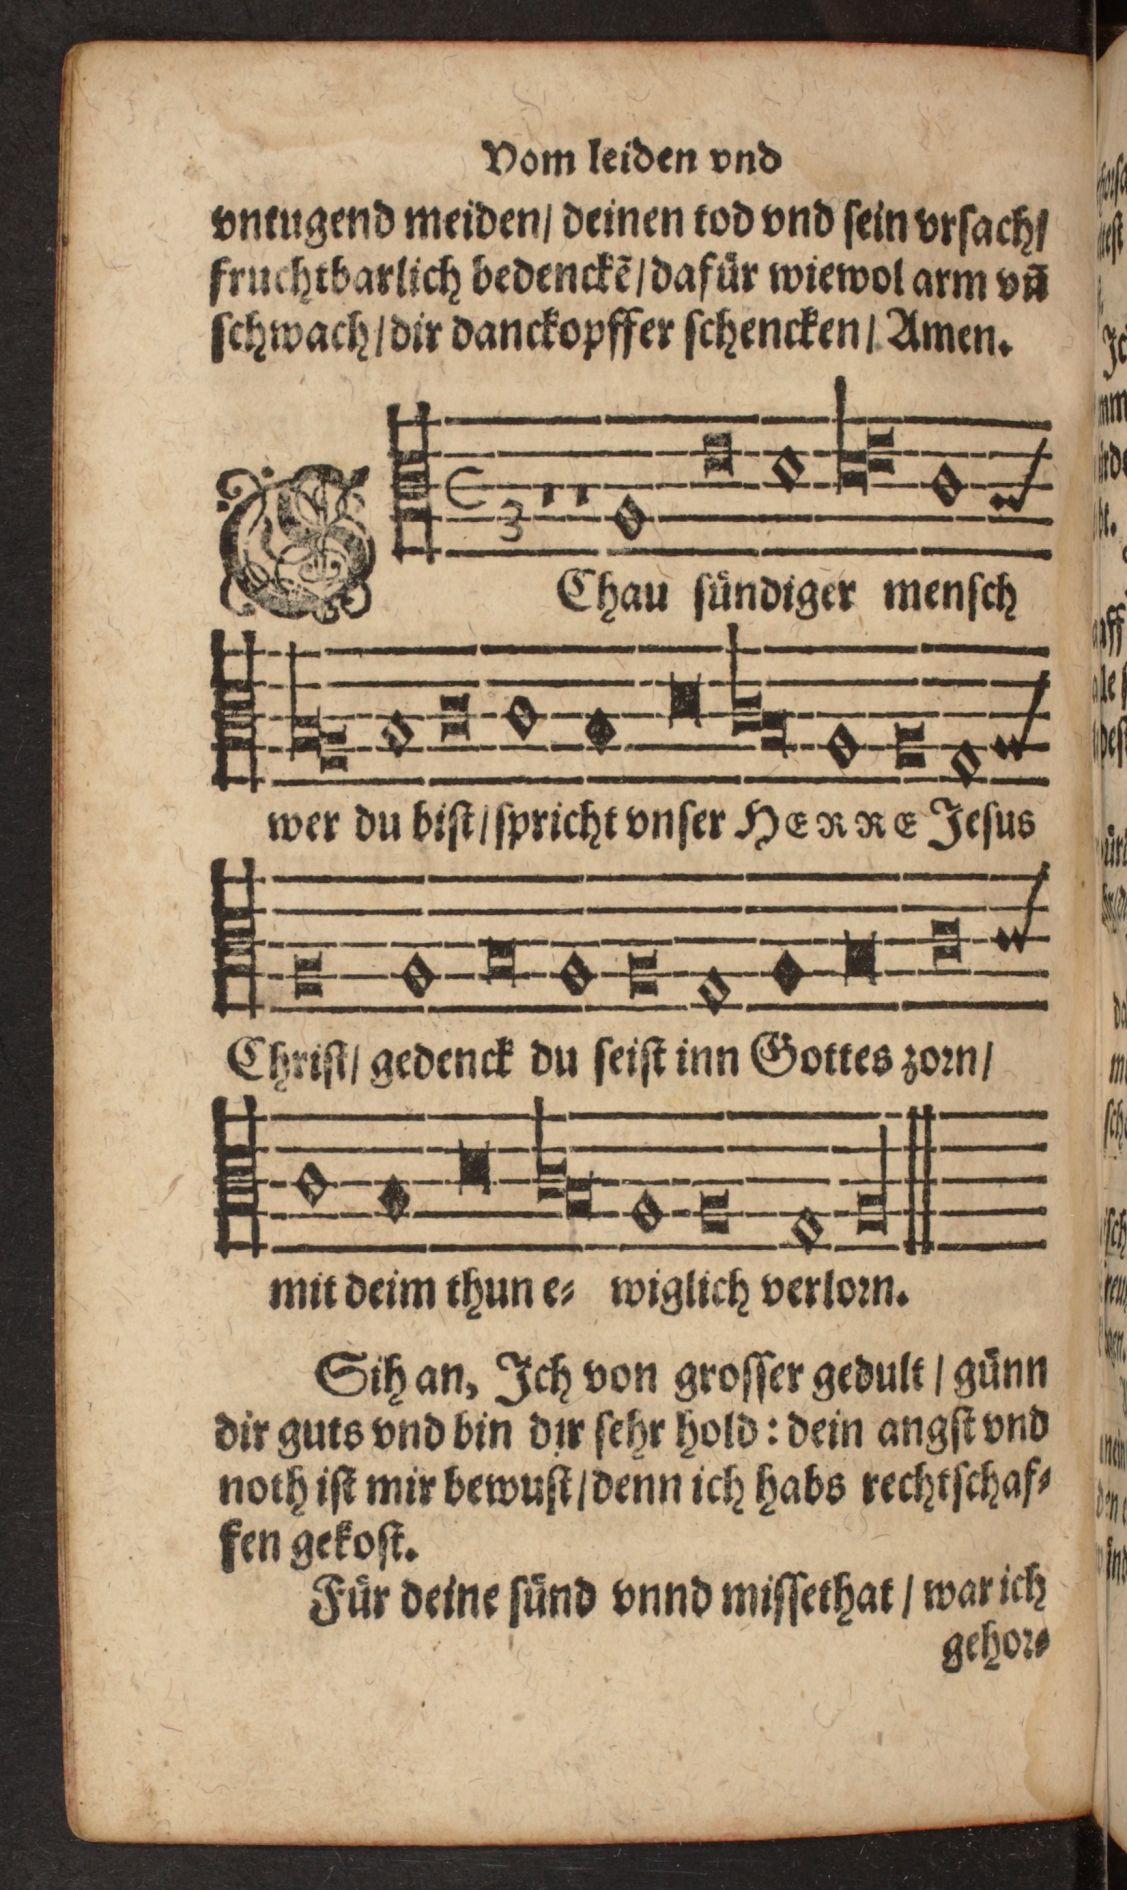 Vom leiden vnd
vntugend meiden/ deinen tod vnd sein vrsach/
fruchtbarlich bedenckẽ/ dafür wiewol arm vñ
schwach/ dir danckopffer schencken/ Amen.
SChau sündiger mensch
wer du bist/ spricht vnser HERRE Jesus
Christ/ gedenck du seist inn Gottes zorn/
mit deim thun e= wiglich verlorn.
Sih an, Jch von grosser gedult / günn
dir guts vnd bin dir sehr hold: dein angst vnd
noth ist mir bewust/ denn ich habs rechtschaf=
fen gekost.
Für deine sünd vnnd missethat / war ich
gehor=